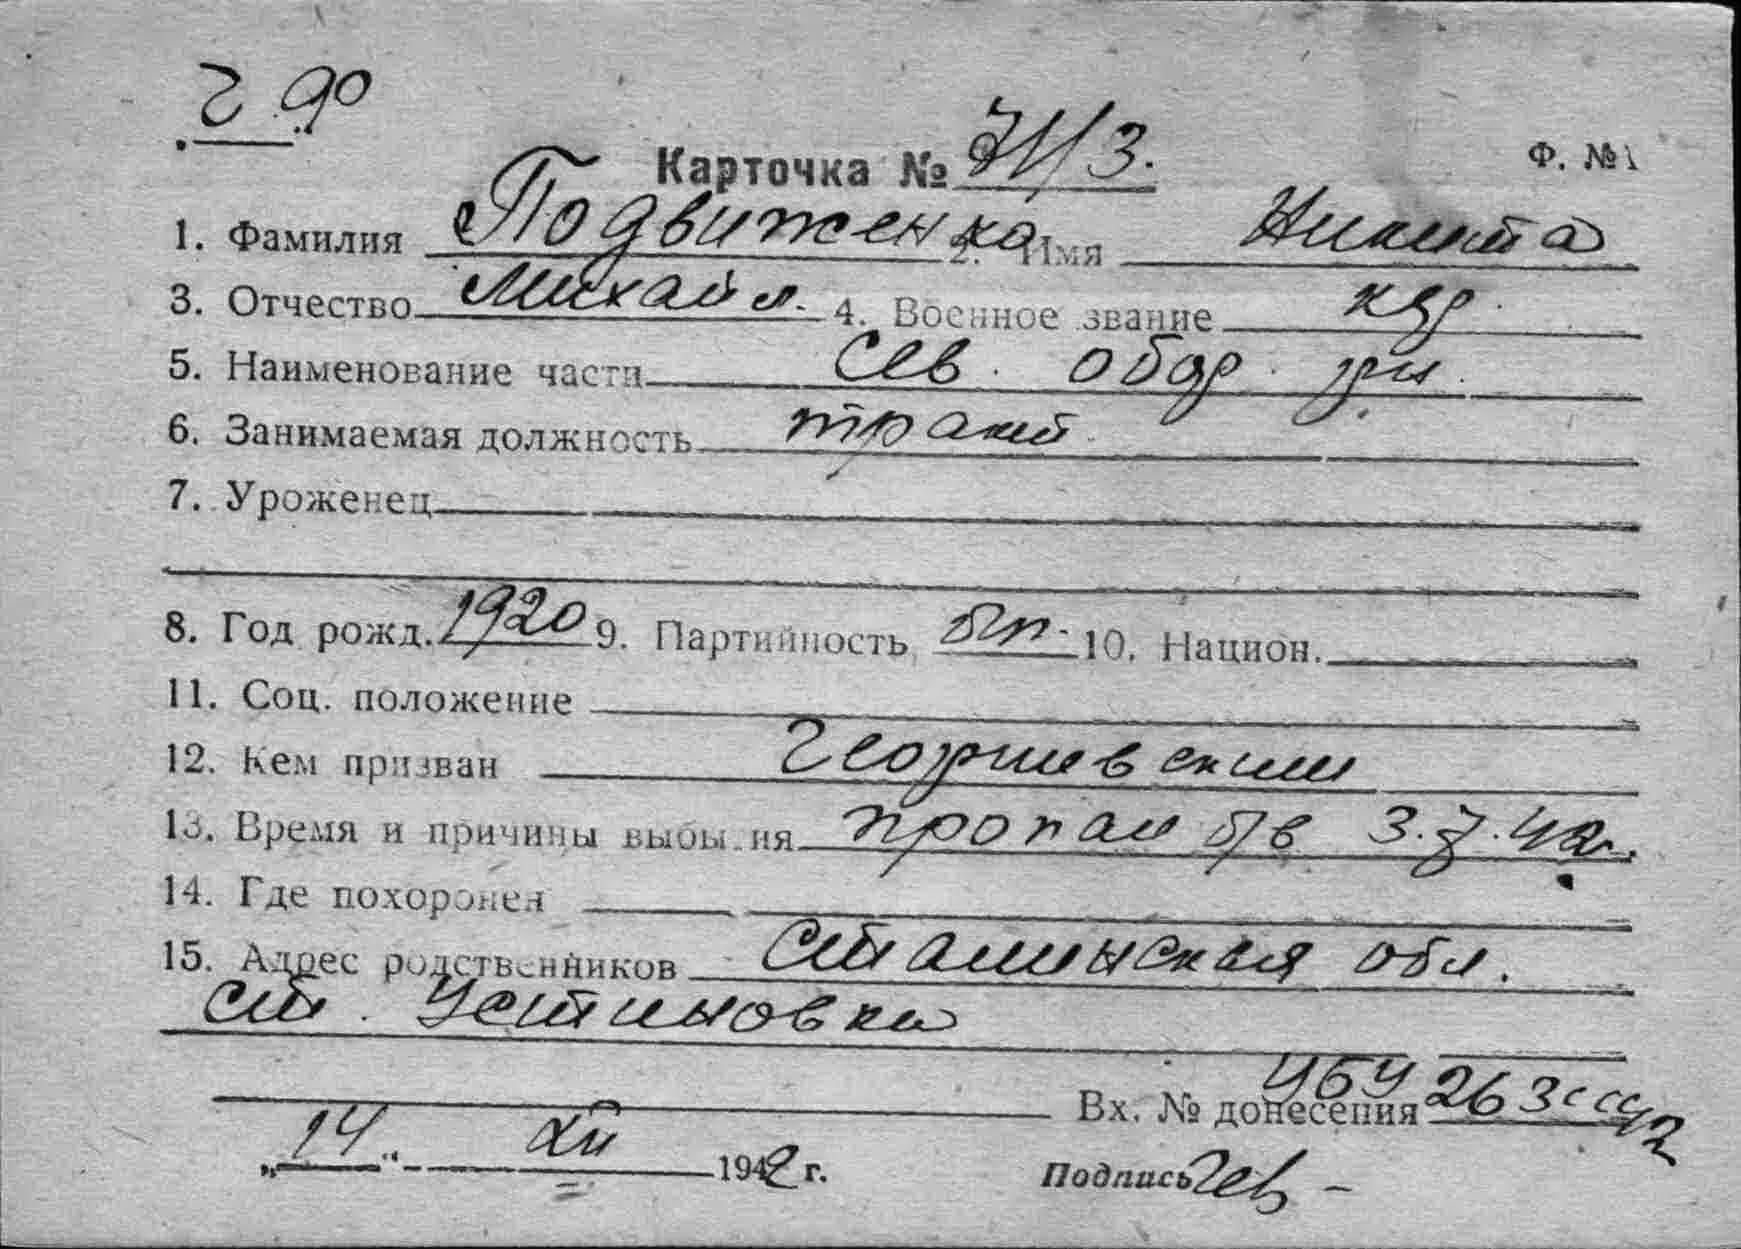 Карточка № Ф. №1
1. Фамилия Подвиженко 2. Имя Никита
3. Отчество Михайл. 4. Военное звание кдр.
5. Наименование части Сев. обор. рн.
6. Занимаемая должность тракт.
7. Уроженец
8. Год рожд. 1920 9. Партийность бп. 10. Национ.
11. Соц. положение
12. Кем призван Георгиевским
13. Время и причины выбытия пропал б/в 3.7.42г.
14. Где похоронен
15. Адрес родственников Сталинская обл.
ст. Устиновка
Вх. № донесения 263сс
„14“ XII 1942 г. Подпись